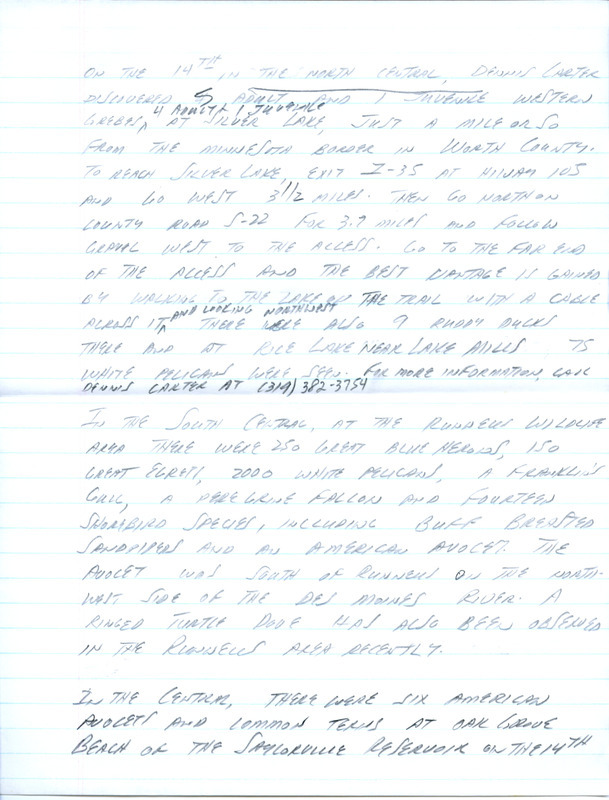 ON THE 14TH IN THE NORTH CENTRAL, DENNIS CARTER
DISCOVERED 5 ADULT AND 1 JUVENILE WESTERN
4 ADULT & 1 JUVENILE
GREBES, AT SILVER LAKE, JUST A MILE OR SO
FROM THE MINNESOTA BORDER IN WORTH COUNTY.
TO REACH SILVER LAKE, EXIT I-35 AT HIWAY 105
AND GO WEST 3 1/2 MILES. THEN GO NORTH ON
COUNTY ROAD S-22 FOR 3.7 MILES AND FOLLOW
GRAVEL WEST TO THE ACCESS. GO TO THE FAR END
OF THE ACCESS AND THE BEST VANTAGE IS GAINED
BY WALKING TO THE LAKE ON THE TRAIL WITH A CABLE
AND LOOKING NORTHWEST
ACROSS IT. THERE WERE ALSO 9 RUDDY DUCKS
THERE AND AT RICE LAKE NEAR LAKE MILLS 75
WHITE PELICANS WERE SEEN. FOR MORE INFORMATION, CALL
DENNIS CARTER AT (319) 382-3754
IN THE SOUTH CENTRAL, AT THE RUNNELLS WILDLIFE
AREA THERE WERE 250 GREAT BLUE HERONS, 150
GREAT EGRETS, 2000 WHITE PELICANS, A FRANKLIN'S
GULL, A PEREGRINE FALCON AND FOURTEEN
SHOREBIRD SPECIES, INCLUDING BUFF BREASTED
SANDPIPERS AND AN AMERICAN AVOCET. THE
AVOCET WAS SOUTH OF RUNNELLS ON THE NORTH-
WEST SIDE OF THE DES MOINES RIVER. A
RINGED TURTLE DOVE HAS ALSO BEEN OBSERVED
IN THE RUNNELLS AREA RECENTLY.
IN THE CENTRAL, THERE WERE SIX AMERICAN
AVOCETS AND COMMON TERNS AT OAK GROVE
BEACH OF THE SAYLORVILLE RESERVOIR ON THE 14TH